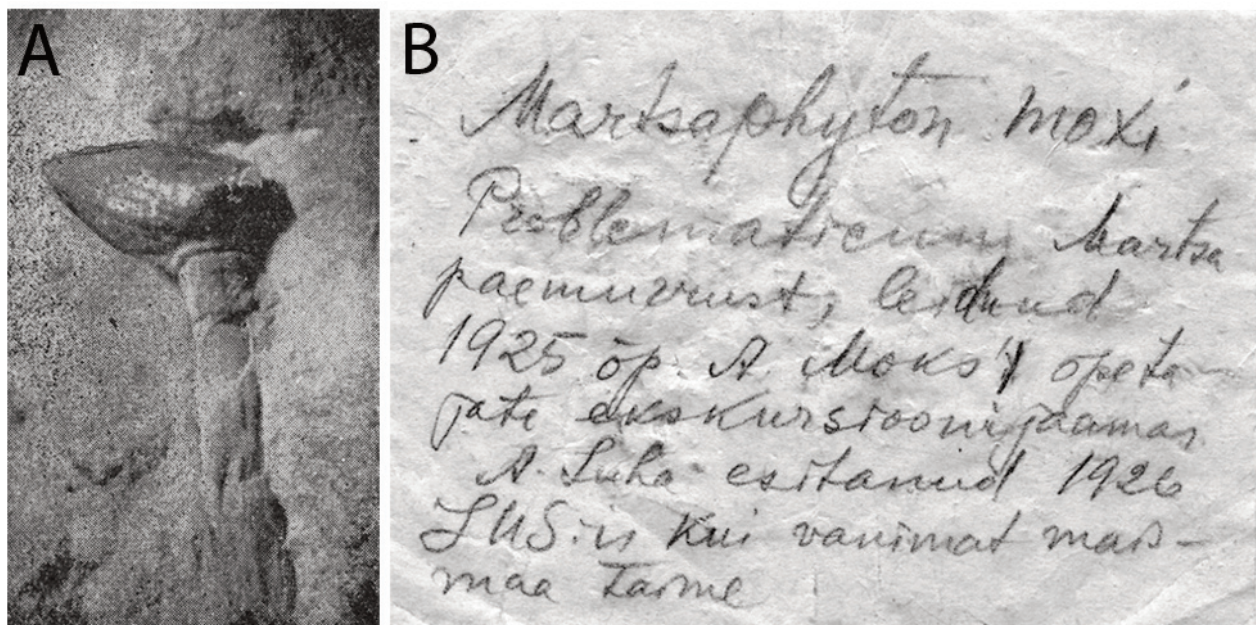 A
B
Martsaphyton moxi
Problematicum Martsa
paemurrust, leidnud
1925 õp. A. Moks'i opeta-
jate ekskursioonijaamas
A. Luha esitanud 1926
LUS.is kui vanimat mais-
maa taime